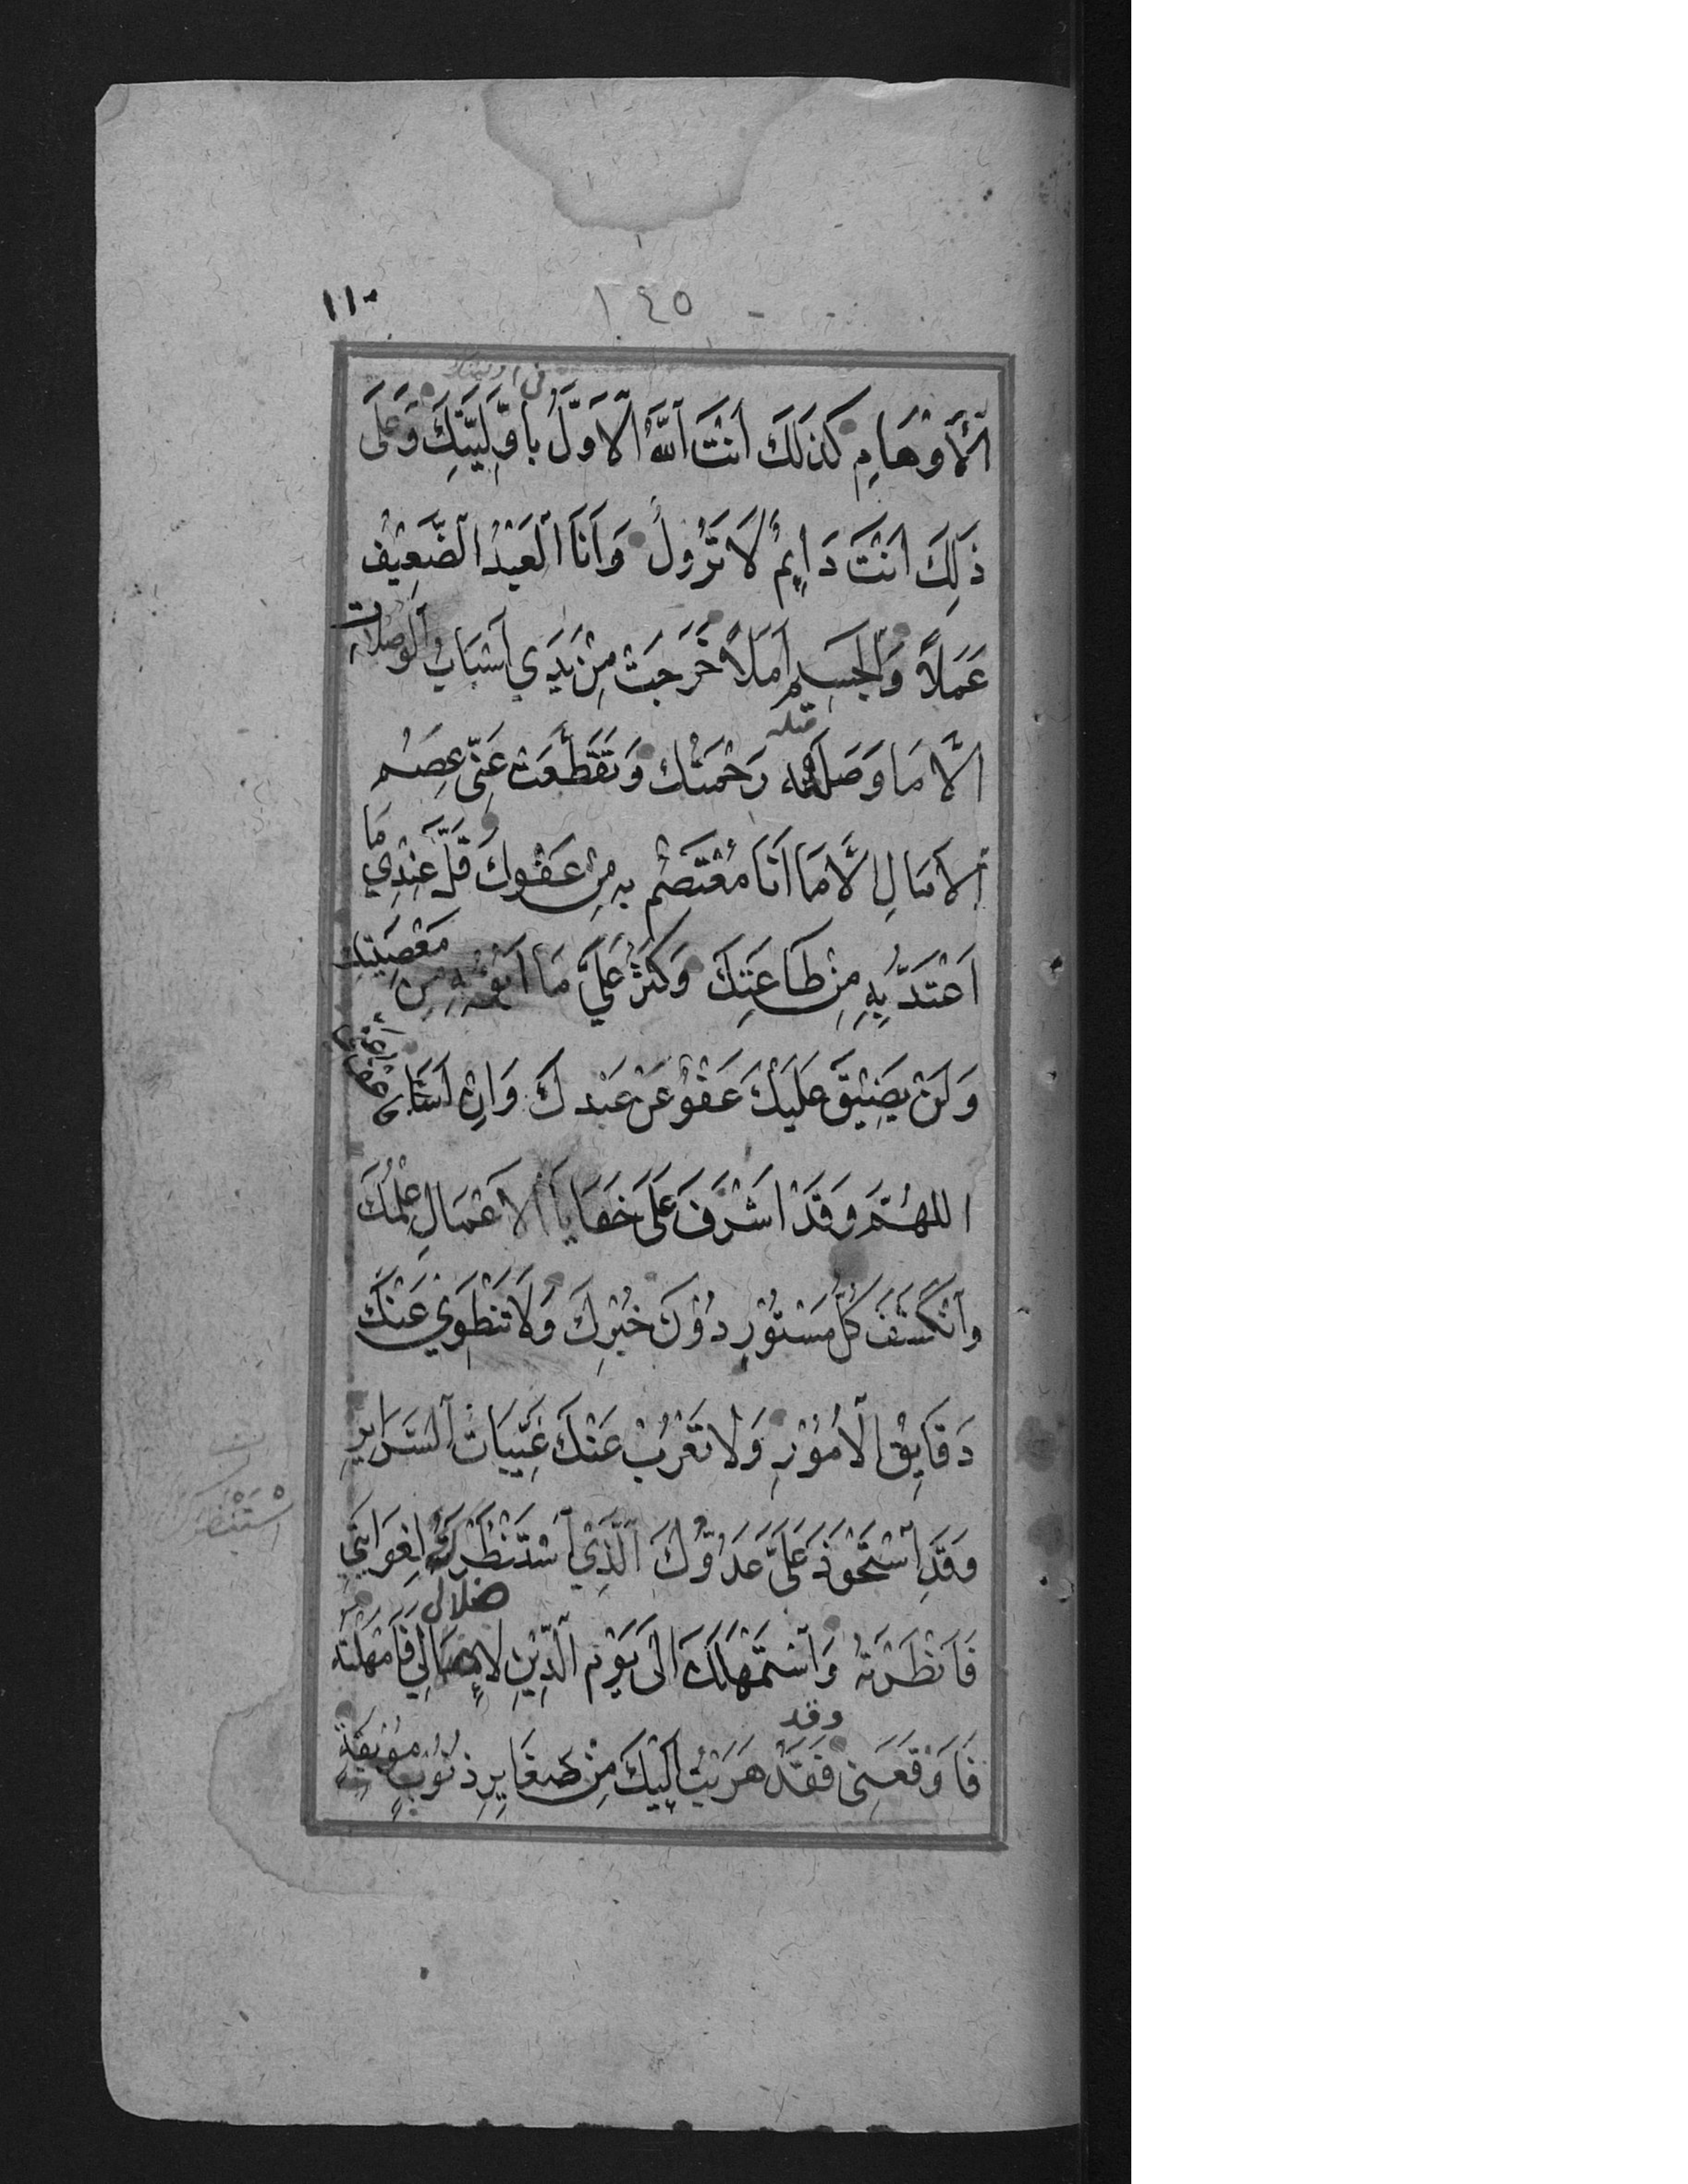 ١١٠
١٤٥
في اوليتك
ٱلْأَوْهَامِ كَذَلِكَ اَنْتَ اَللهُ اَلْاَوَّلُ بِاَوَّلِيَّتِكَ وَعَلَى
ذَلِكَ اَنْتَ دَايِمٌ لَا تَزُولُ وَاَنَا الْعَبْدُ الضَّعِيْفُ
عَمَلاً وَالْجَسِيمُ اَمَلاً خَرَجَتْ مِنْ يَدَي اَسْبَابُ الْوُصُلَاتِ
اِلَّا مَا وَصَلَهُ رَحْمَتُكَ وَتَقَطَّعَتْ عَنِّي عِصَمُ
الْاٰمَالِ اِلَّا مَا اَنَا مُعْتَصِمٌ بِهِ مِنْ عَفْوِكَ قَلَّ عِنْدِي مَا
اَعْتَدُّ بِهِ مِنْ طَاعَتِكَ وَكَثُرَ عَلَيَّ مَا اَبُوْءُ بِهِ مِنْ مَعْصِيَتِكَ
وَلَنْ يَضِيْقَ عَلَيْكَ عَفْوٌ عَنْ عَبْدِكَ وَاِنْ اَسَاءَ فَاعْفُ عَنِّي
اَللّٰهُمَّ وَقَدْ اَشْرَفَ عَلَى خَفَايَا الْاَعْمَالِ عِلْمُكَ
وَاَنْكَشَفَ كُلُّ مَسْتُوْرٍ دُوْنَ خُبْرِكَ وَلَا تَنْطَوِي عَنْكَ
دَقَايِقُ الْاُمُوْرِ وَلَا تَعْزُبُ عَنْكَ غَيِّبَاتُ السَّرَايِرِ
وَقَدِ اسْتَحْوَذَ عَلَيَّ عَدُوُّكَ الَّذِي اسْتَنْظَرَكَ لِغَوَايَتِي
اسْتَنْظَرَ
ضلالي
فَاَنْظَرْتَهُ وَاسْتَمْهَلَكَ اِلَى يَوْمِ الدِّيْنِ لِاِضْلَالِي فَاَمْهَلْتَهُ
وقد
فَاَوْقَعَنِي فَقَدْ هَرَبْتُ اِلَيْكَ مِنْ صَغَايِرِ ذُنُوْبٍ مُوْبِقَةٍ